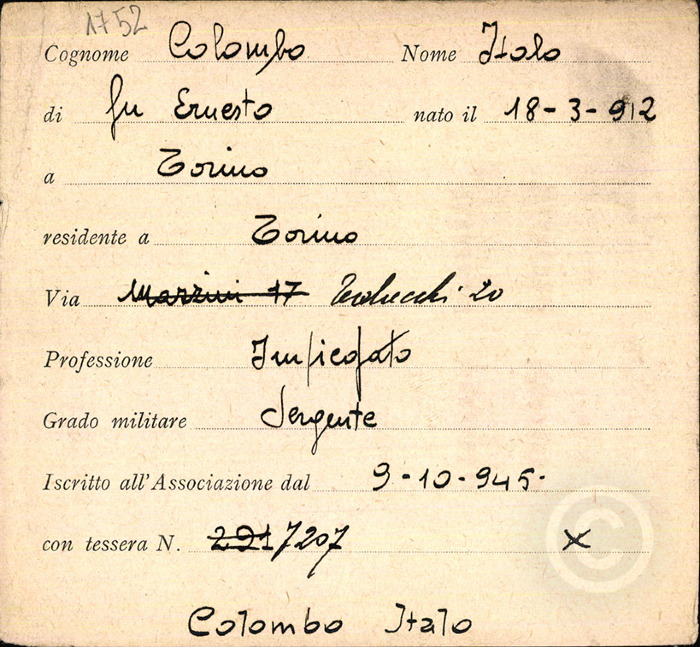 1752
Cognome Colombo Nome Italo
di fu Ernesto nato il 18-3-912
a Torino
residente a Torino
Via Mazzini 17 20
Professione Impiegato
Grado militare Sergente
Iscritto all'Associazione dal 9-10-945.
con tessera N. 291 7207 X
Colombo Italo